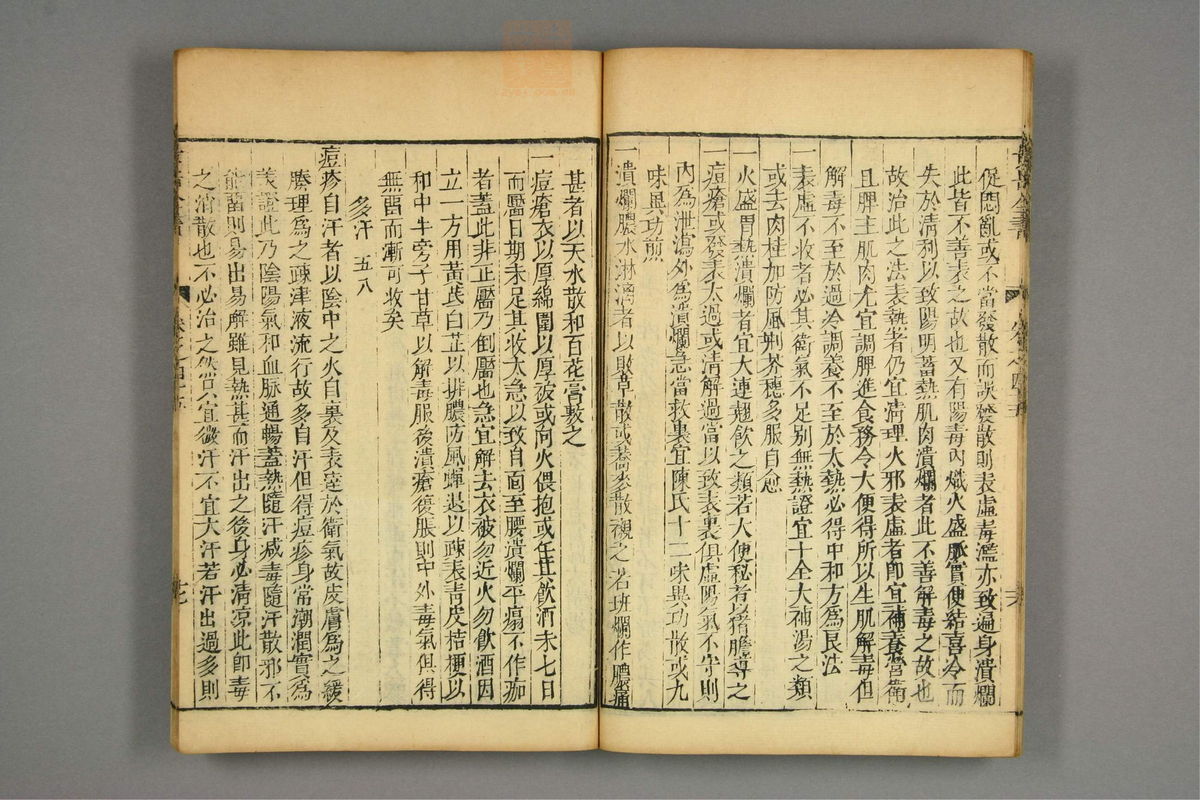 促悶亂或不當發散而誤發散則表虛毒濫亦致遍身潰爛
此皆不善表之故也又有陽毒內熾火盛脈實便結喜冷而
失於清利以致陽明蓄熱肌肉潰爛者此不善解毒之故也
故治此之法表熱者仍宜清理火邪表虛者即宜補養營衛
且脾主肌肉尤宜調脾進食務令大便得所以生肌解毒但
解毒不至於過冷調養不至於太熱必得中和方為良法
一表虛不收者必其衛氣不足別無熱證宜十全大補湯之類
或去肉桂加防風荆芥穗多服自愈
一火盛胃熱潰爛者宜大連翹飲之類若大便秘者以猪膽導之
一痘瘡或發表太過或清解過當以致表裏俱虛陽氣不守則
內為泄瀉外為潰爛急當救裏宜陳氏十二味異功散或九
味異功煎
一潰爛膿水淋漓者以敗草散或蕎麥散襯之若斑爛作膿痛
甚者以天水散和百花膏敷之
一痘瘡衣以厚綿圍以厚被或向火偎抱或年長飲酒未七日
而靨日期未足其收太急以致自面至腰潰爛平瘍不作痂
者蓋此非正靨乃倒靨也急宜解去衣被勿近火勿飲酒因
立一方用黃芪白芷以排膿防風蟬退以疎表青皮桔梗以
和中牛旁子甘草以解毒服後潰瘡復脹則中外毒氣俱得
無留而漸可收矣
多汗 五八
痘疹自汗者以陰中之火自裏及表達於衛氣故皮膚為之緩
腠理為之疎津液流行故多自汗但得痘疹身常潮潤實為
美證此乃陰陽氣和血脈通暢蓋熱隨汗减毒隨汗散邪不
能留則易出易解雖見熱甚而汗出之後身必清涼此即毒
之消散也不必治之然只宜微汗不宜大汗若汗出過多則